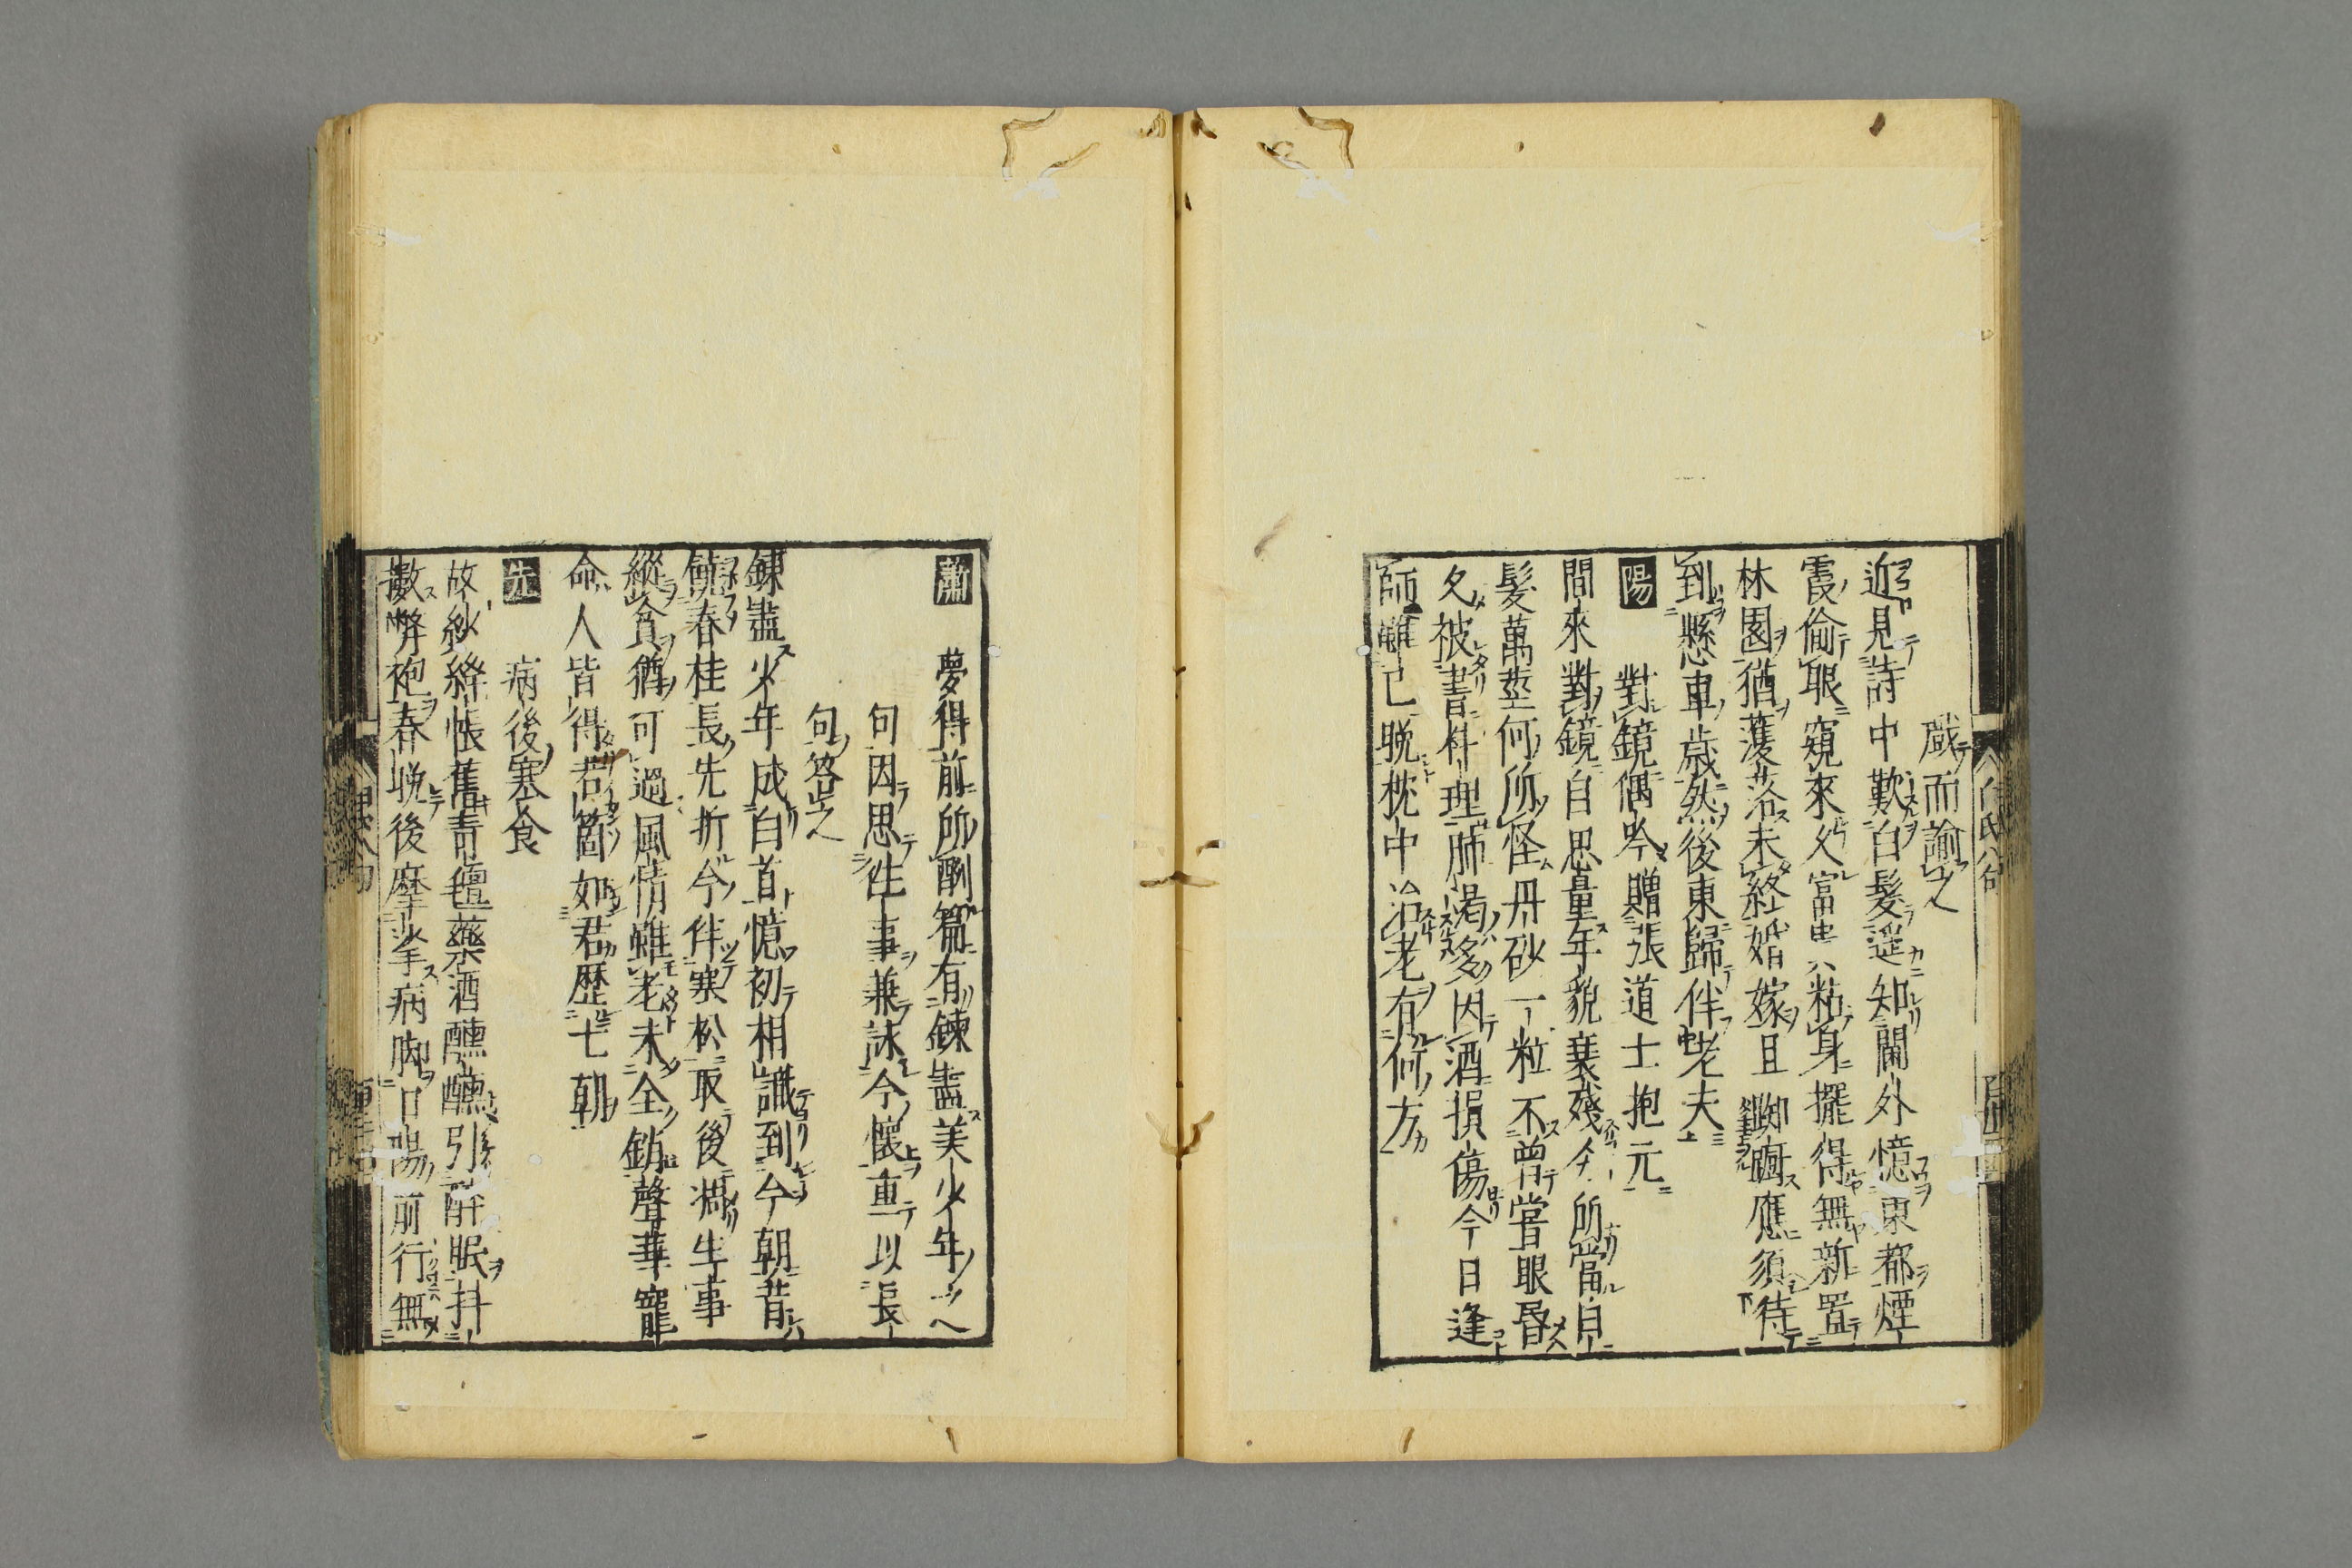 戯而諭之
近見詩中歎白髮遥知閫外憶東都煙
霞偷眼窺來久富貴粘身擺得無新置
林園猶濩落未終婚嫁且踟蹰應須待
到懸車歳然後東歸伴老夫
陽　對鏡偶吟贈張道士抱元
問來對鏡自思量年貌衰殘分所當白
髮萬莖何所怪丹砂一粒不曽嘗眼昏
久被書料理肺渴多因酒損傷今日逢
師雖已晩枕中治老有何方
蕭　夢得前所酬篇有錬盡美少年之
句因思往事兼詠今懷重以長
句答之
錬盡少年成白首憶初相識到今朝昔
饒春桂長先折今伴寒松取後凋生事
縱貧猶可過風情雖老未全銷聲華寵
命人皆得若箇如君歴七朝
先　病後寒食
故紗絳帳舊青氊藥酒醺醺引醉眠抖
擻弊袍春晩後摩挲病脚日陽前行無